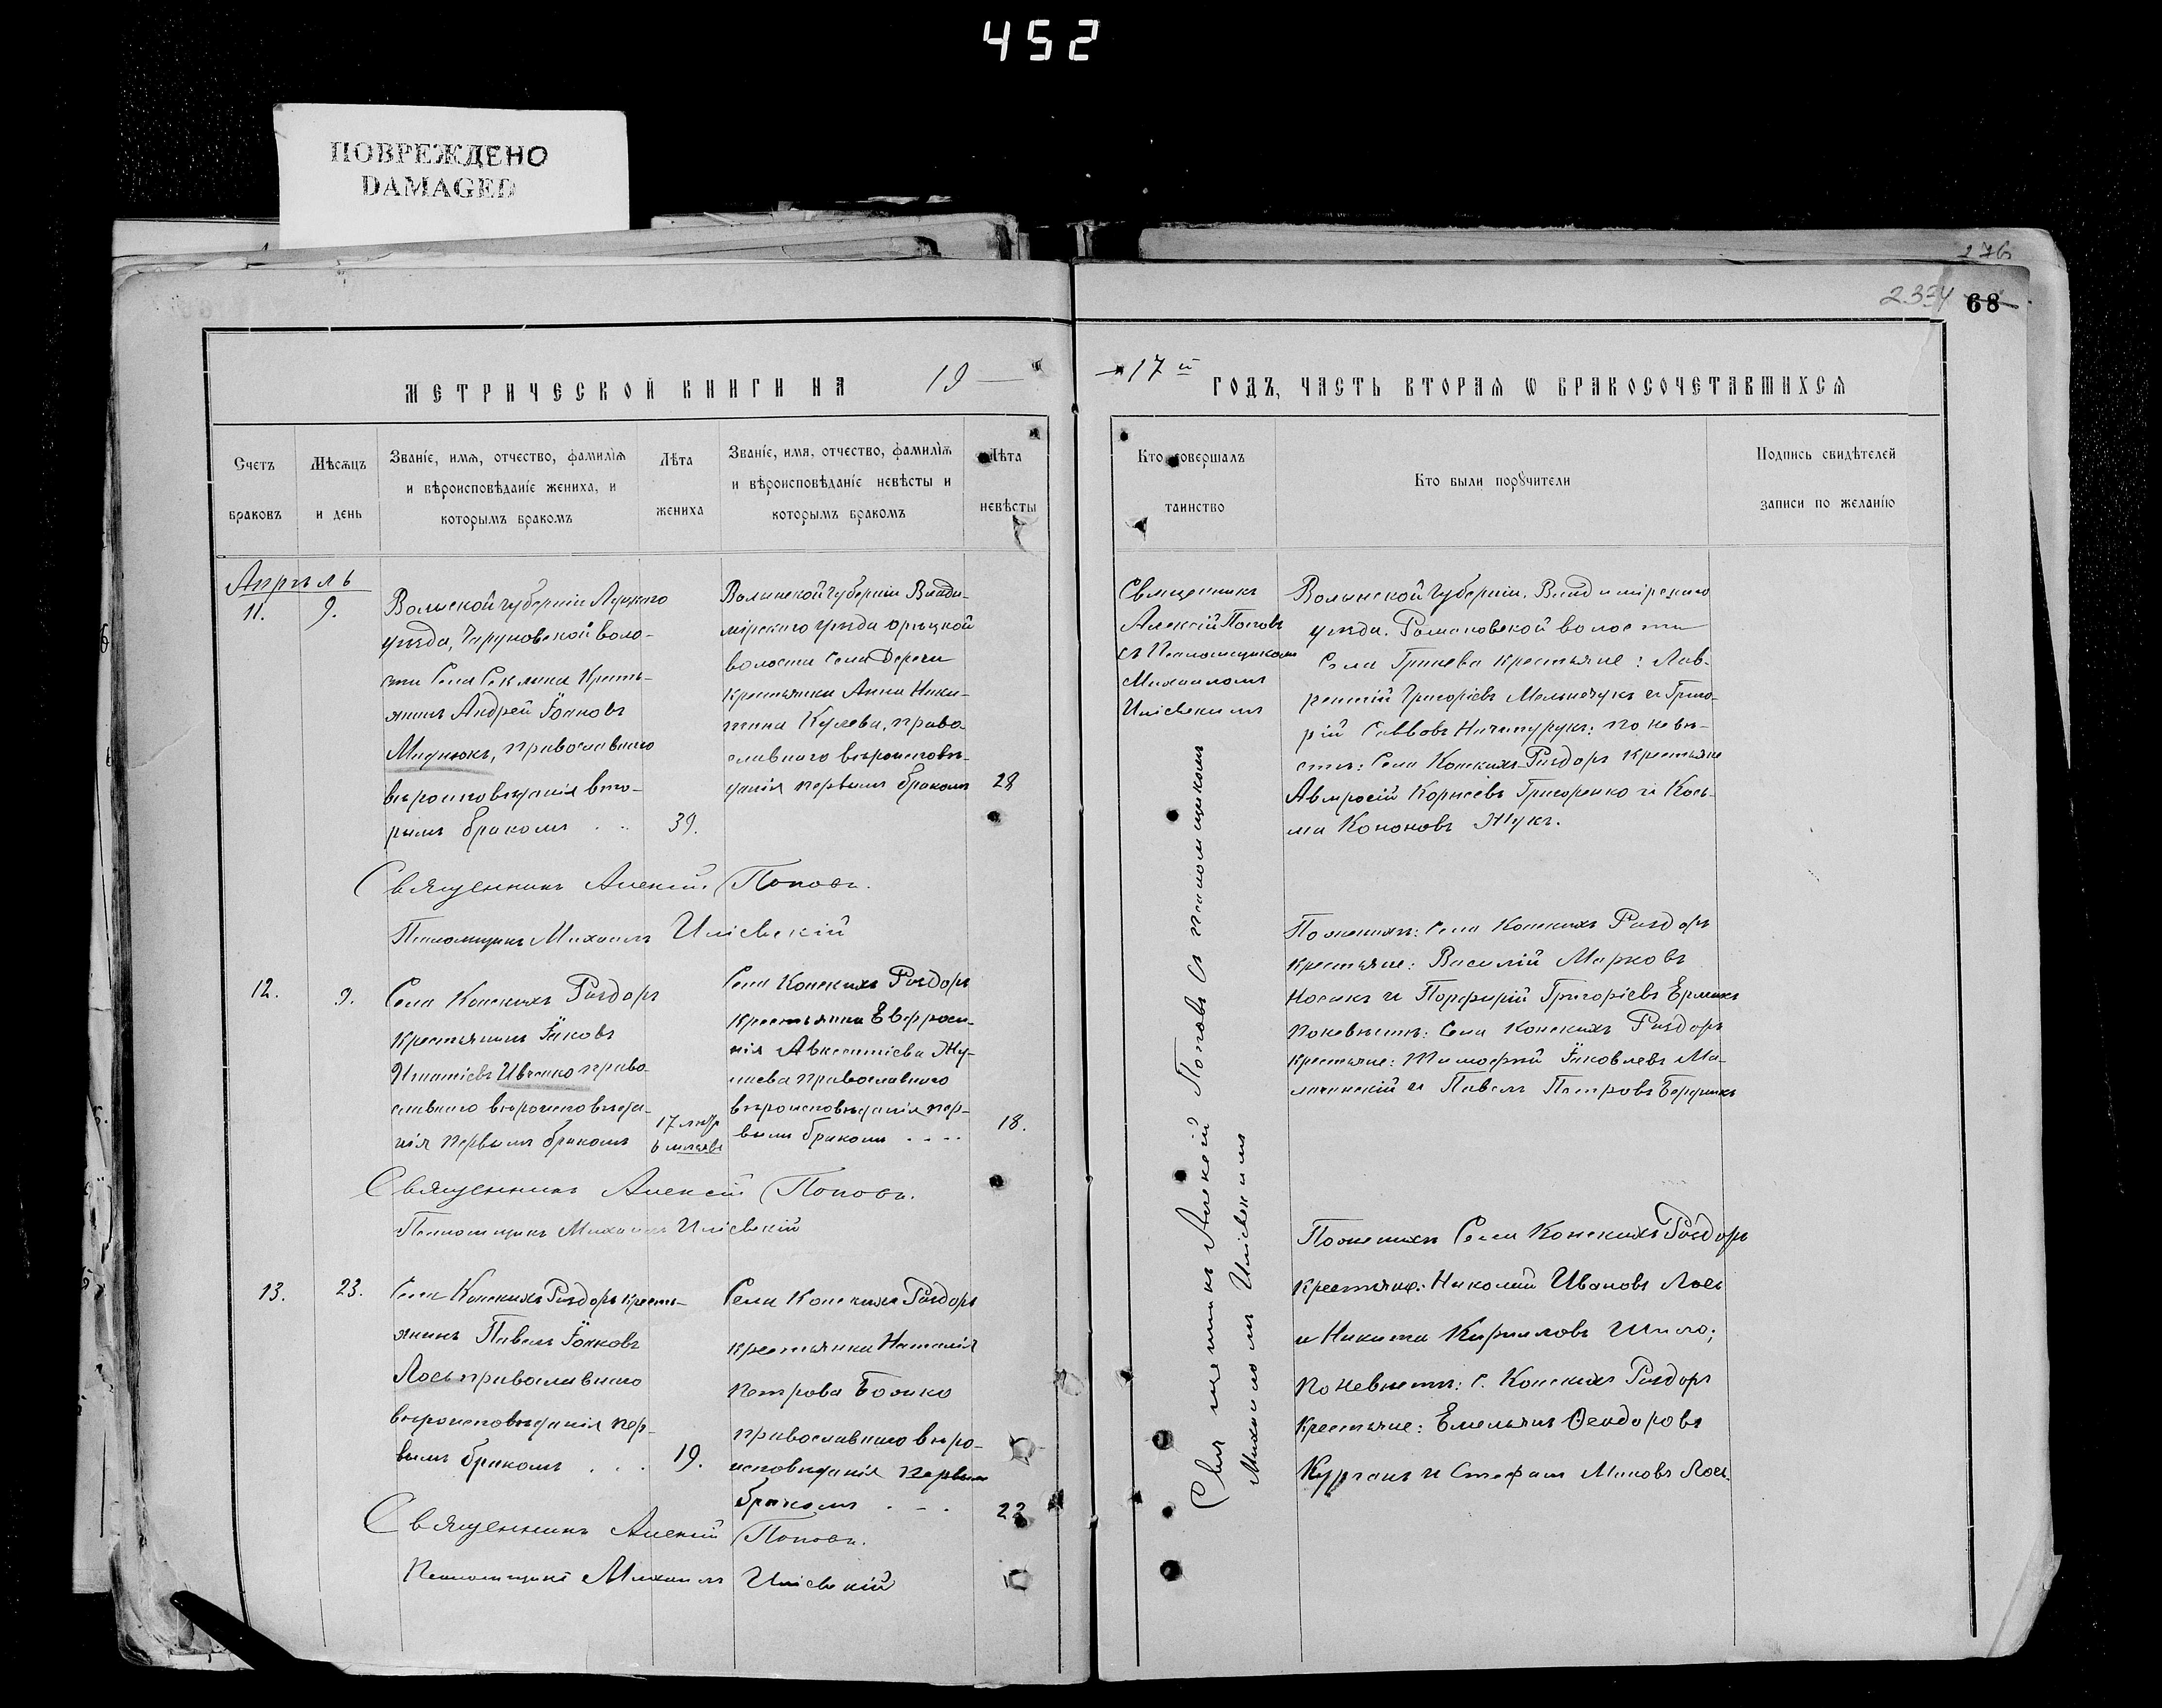 452
ПОВРЕЖДЕНО
DAMAGED
276
2324 68
МЕТРИЧЕСКОЙ КНИГИ НА 19
17й ГОДЪ, ЧАСТЬ ВТОРАЯ Ѡ БРАКОСОЧЕТАВШИХСЯ
Счетъ
браковъ
Мѣсяцъ
и день
Званіе, имя, отчество, фамилія
и вѣроисповѣданіе жениха, и
которымъ бракомъ
Лѣта
жениха
Званіе, имя, отчество, фамилія
и вѣроисповѣданіе невѣсты и
которымъ бракомъ
Лѣта
невѣсты
Кто совершалъ
таинство
Кто были поручители
Подпись свидѣтелей
записи по желанію
Апрѣль
11.
9.
Волынской губерніи Луцкаго
уѣзда, Чаруковской воло-
сти Села Секлина Кресть-
янинъ Андрей Іаковъ
православнаго
вѣроисповѣданія вто-
рымъ бракомъ
39.
Волынской губерніи Влади-
мірскаго уѣзда
волости Села
крестьянка Анна Ники-
тина Кулева, право-
славнаго вѣроисповѣ-
данія первымъ бракомъ
28
Священникъ
Алексій Поповъ
съ Псаломщикомъ
Михаиломъ
Иліевскимъ
Волынской губерніи, Владимірскаго
уѣзда. Романовской волости
Села Гринева крестьяне: Лав-
рентій Григоріевъ Мельничукъ и Григо-
рій Саввовъ Ничипурукъ: по невѣ-
стѣ: Села Конскихъ-Раздоръ крестьяне
Амвросій Корнеевъ Григоренко и Кось-
ма Кононовъ Жукъ.
Священникъ Алексій Поповъ.
Псаломщикъ Михаилъ Иліевскій
12.
9.
Села Конскихъ Раздоръ
крестьянинъ Іаковъ
Игнатіевъ Ивченко право-
славнаго вѣроисповѣда-
нія первымъ бракомъ
17 лѣтъ
6 мѣсяцъ
Села Конскихъ Раздоръ
крестьянка Евфроси-
нія Авксентіева Жу-
православнаго
вѣроисповѣданія пер-
вымъ бракомъ
18.
По женихѣ: Села Конскихъ Раздоръ
крестьяне: Василій Марковъ
Носикъ и Порфирій Григоріевъ Ермакъ
По невѣстѣ: Села Конскихъ Раздоръ
крестьяне: Тимофей Іаковлевъ Ма-
и Павелъ Петровъ
Священникъ Алексій Поповъ.
Псаломщикъ Михаилъ Иліевскій
13.
23.
Села Конскихъ Раздоръ кресть-
янинъ Павелъ Іаковъ
Лось православнаго
вѣроисповѣданія пер-
вымъ бракомъ
19.
Села Конскихъ Раздоръ
крестьянка Наталія
Петрова Божко
православнаго вѣро-
исповѣданія первымъ
бракомъ
22
Священникъ Алексій Поповъ съ псаломщикомъ
Михаиломъ Иліевскимъ
По женихѣ Села Конскихъ Раздоръ
крестьяне: Николай Ивановъ Лось
и Никита Кирилловъ Шило;
По невѣстѣ: С. Конскихъ Раздоръ
крестьяне: Емельянъ Ѳеодоровъ
Курганъ и Стефанъ Лось.
Священникъ Алексій Поповъ.
Псаломщикъ Михаилъ Иліевскій